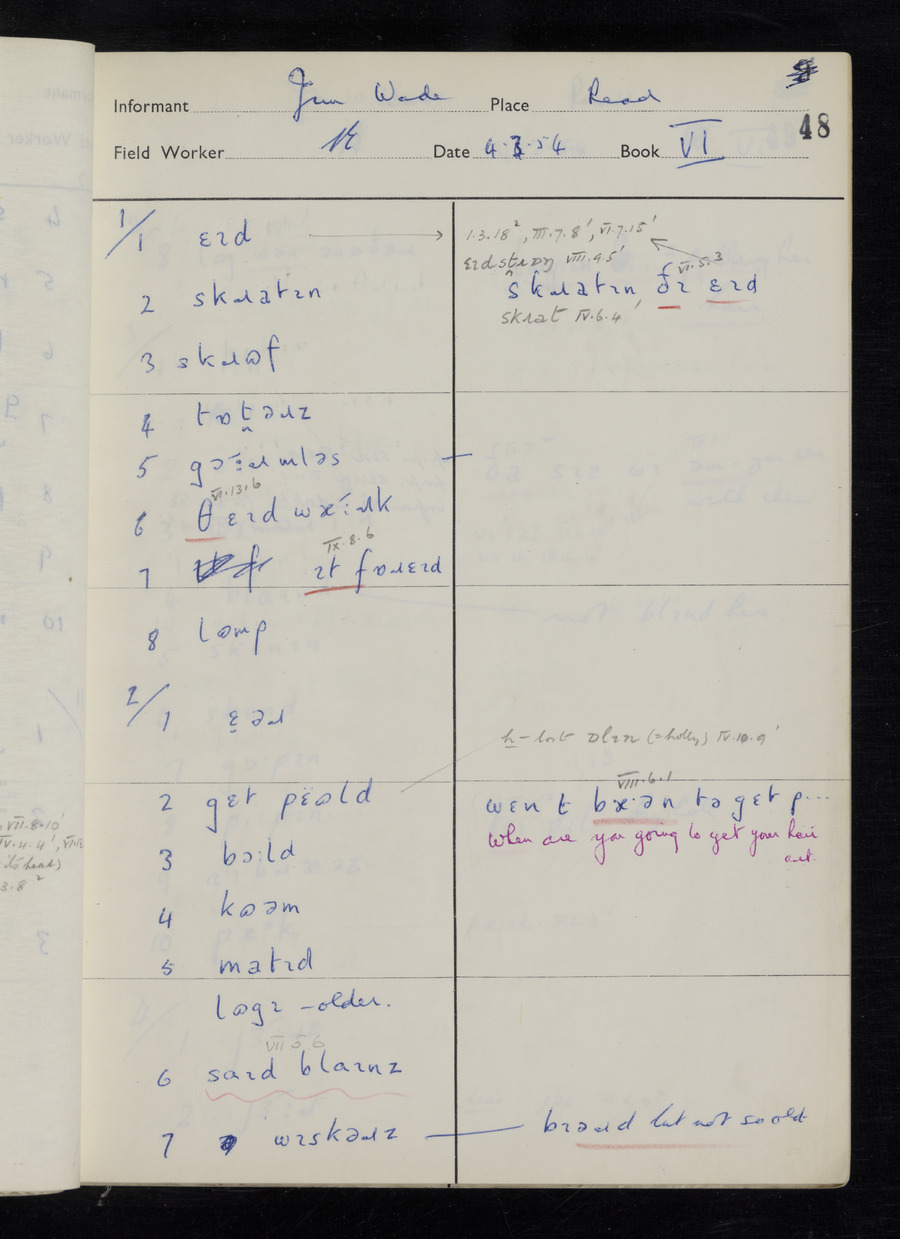 48
Informant Jim Wade Place Read
Field Worker Date 4.3.54 Book VI
1/1 ɛɪd → I.3.18², III.7.8', VI.7.15'
ɛɪdstɪʊn VIII.9.5'
VI.5.3
2 skɹatɪn skɹatɪn ðɪ ɛɪd
skɹat IV.6.4'
3 skɹɒf
4 tɒtəɹz
5 gɔːɹmləs —
VI.13.6
6 θ ɛɪd wæːɹk
IX.8.6
7 ɪt fɒɹɛɪd
8 lɒmp
2/1 ɛəɹ
h-lost ɒlɪn (= holly) IV.10.9'
VIII.6.1
2 get pɛɒld wen t bæən tə get p...
When are you going to get your hair
cut.
3 bɔːld
4 kɒəm
5 matɪd
lɒgɪ – older.
VII 5 6
6 saɪd blaɪnz
7 wɪskəɹz — bɪəɹd but not so old
VII.8.10'
IV.4.4', VI.13
to head)
3.8²